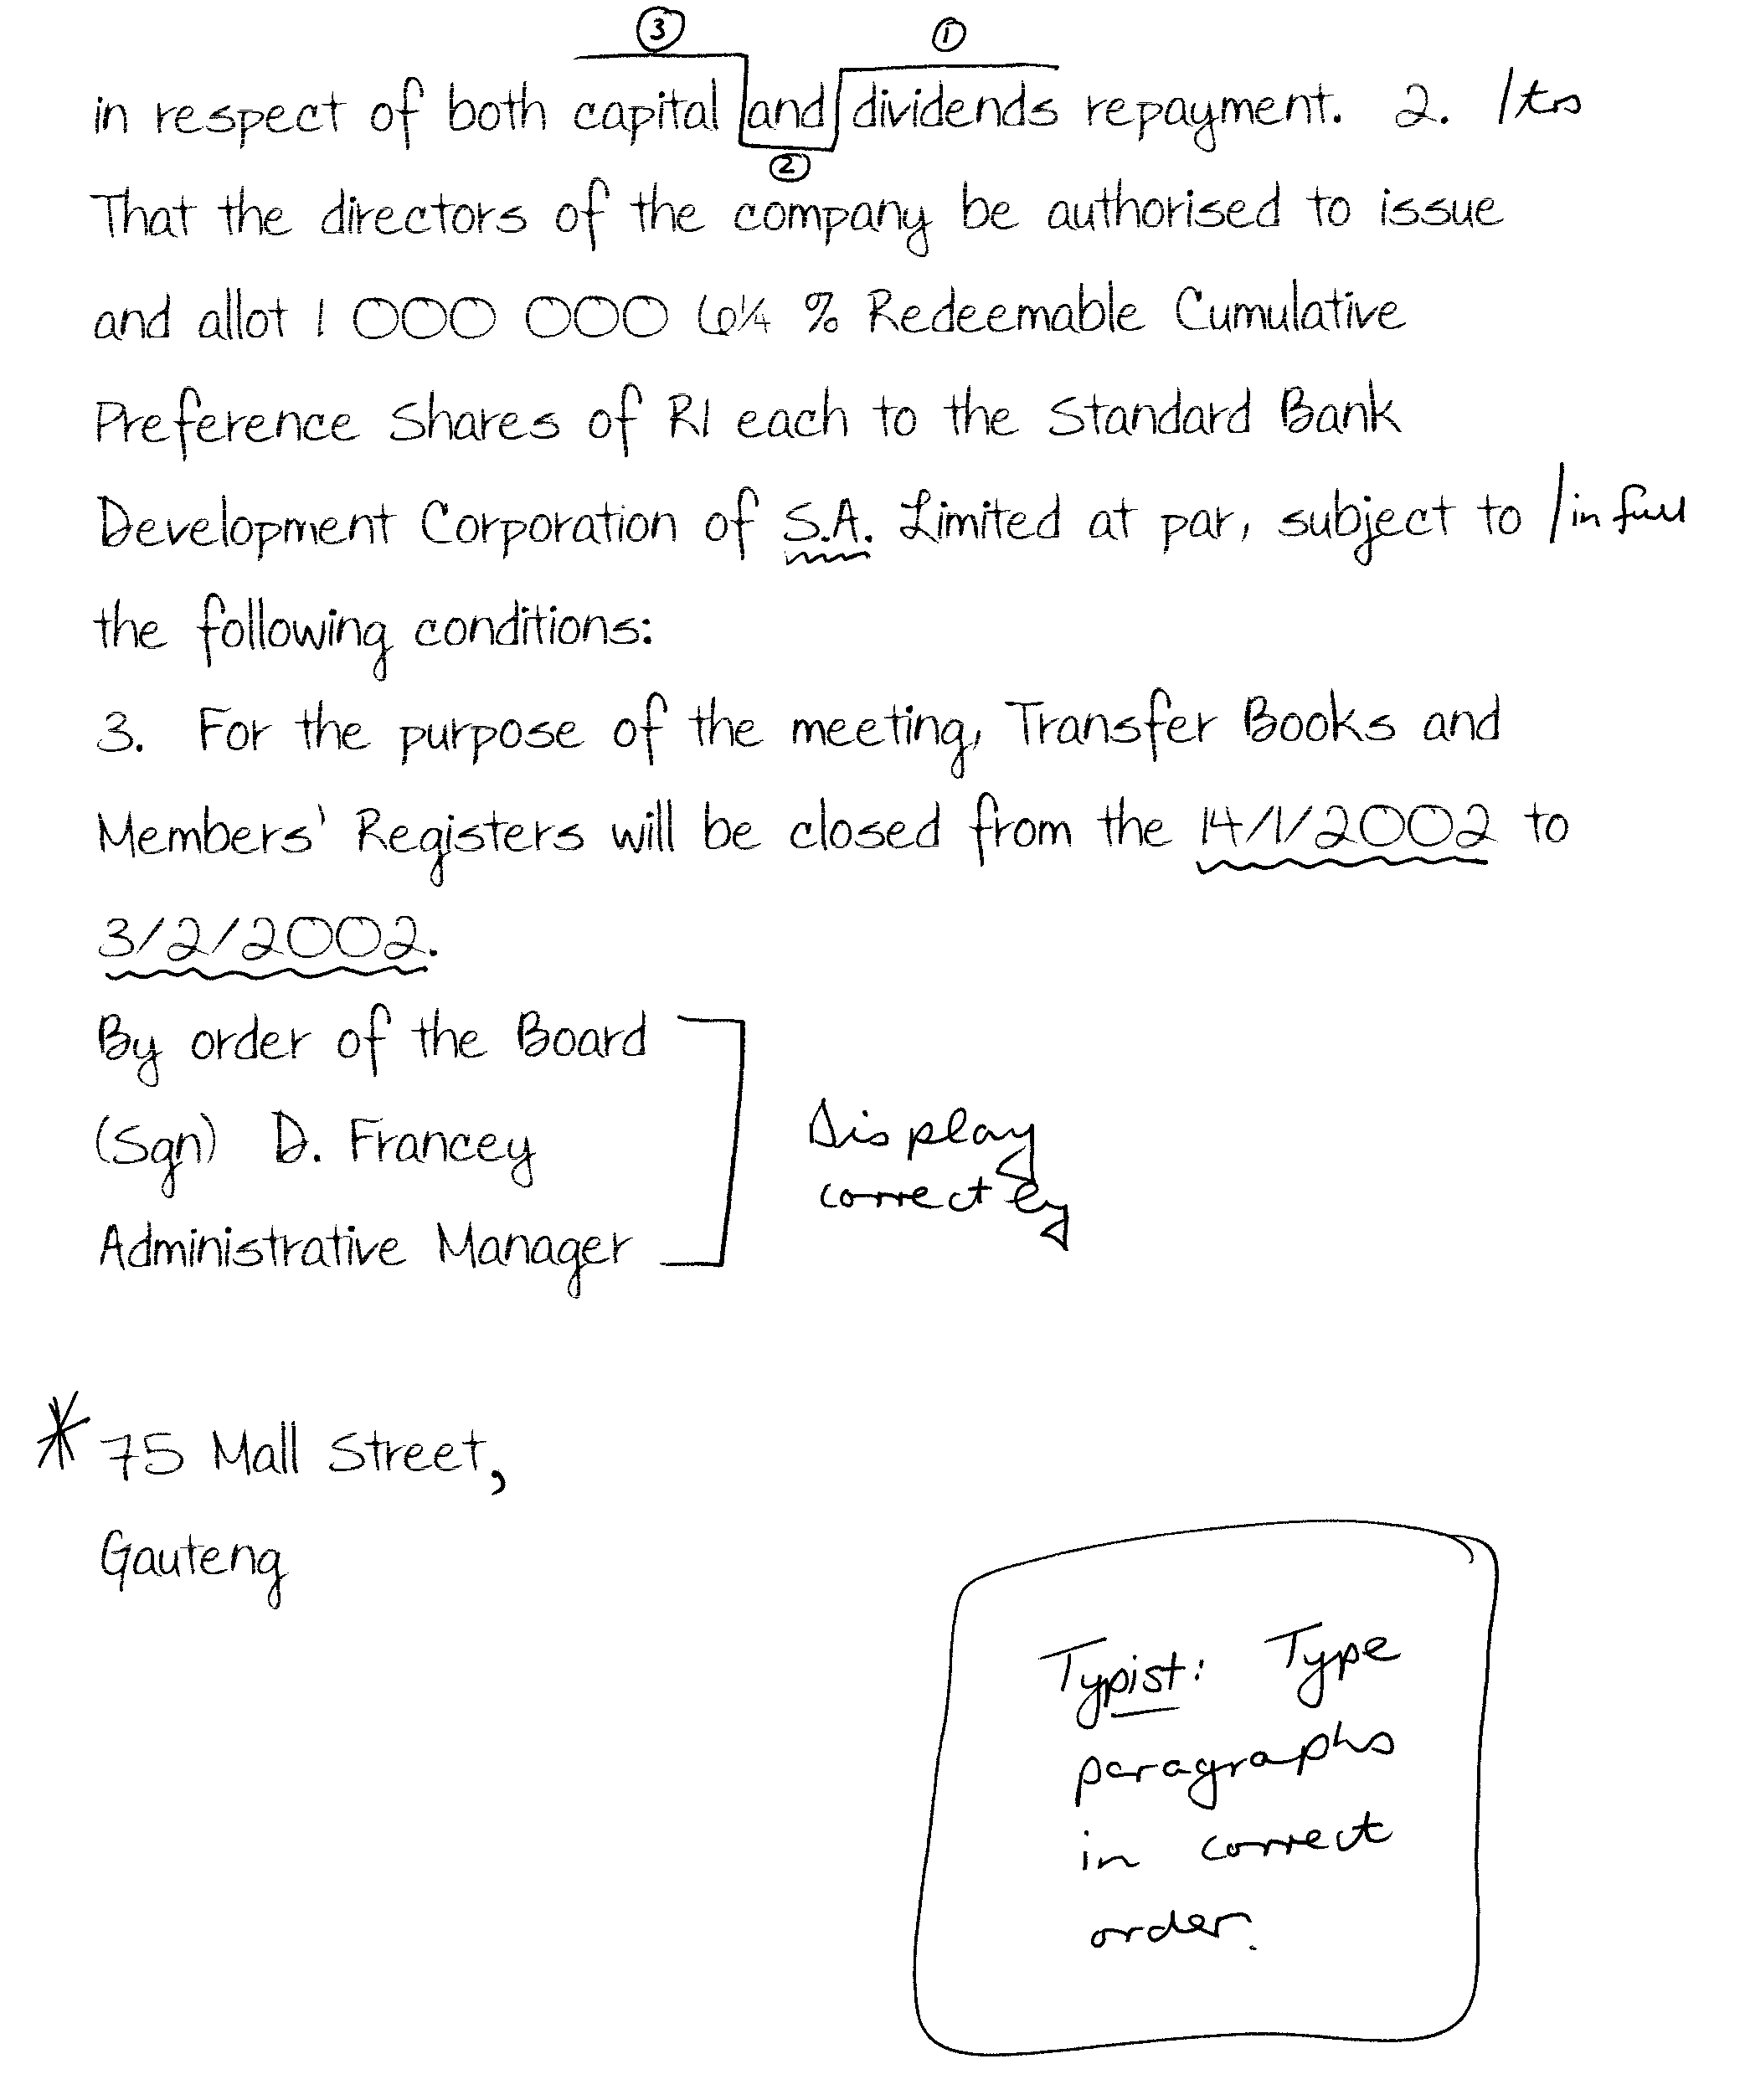 ③ ①
in respect of both capital and dividends repayment. 2. /trs
②
That the directors of the company be authorised to issue
and allot 1 000 000 6¼ % Redeemable Cumulative
Preference Shares of R1 each to the Standard Bank
Development Corporation of S.A. Limited at par, subject to /in full
the following conditions:
3. For the purpose of the meeting, Transfer Books and
Members' Registers will be closed from the 14/1/2002 to
3/2/2002.
By order of the Board
(Sgn) D. Francey
Administrative Manager
Display
correctly
* 75 Mall Street,
Gauteng
Typist: Type
paragraphs
in correct
order.